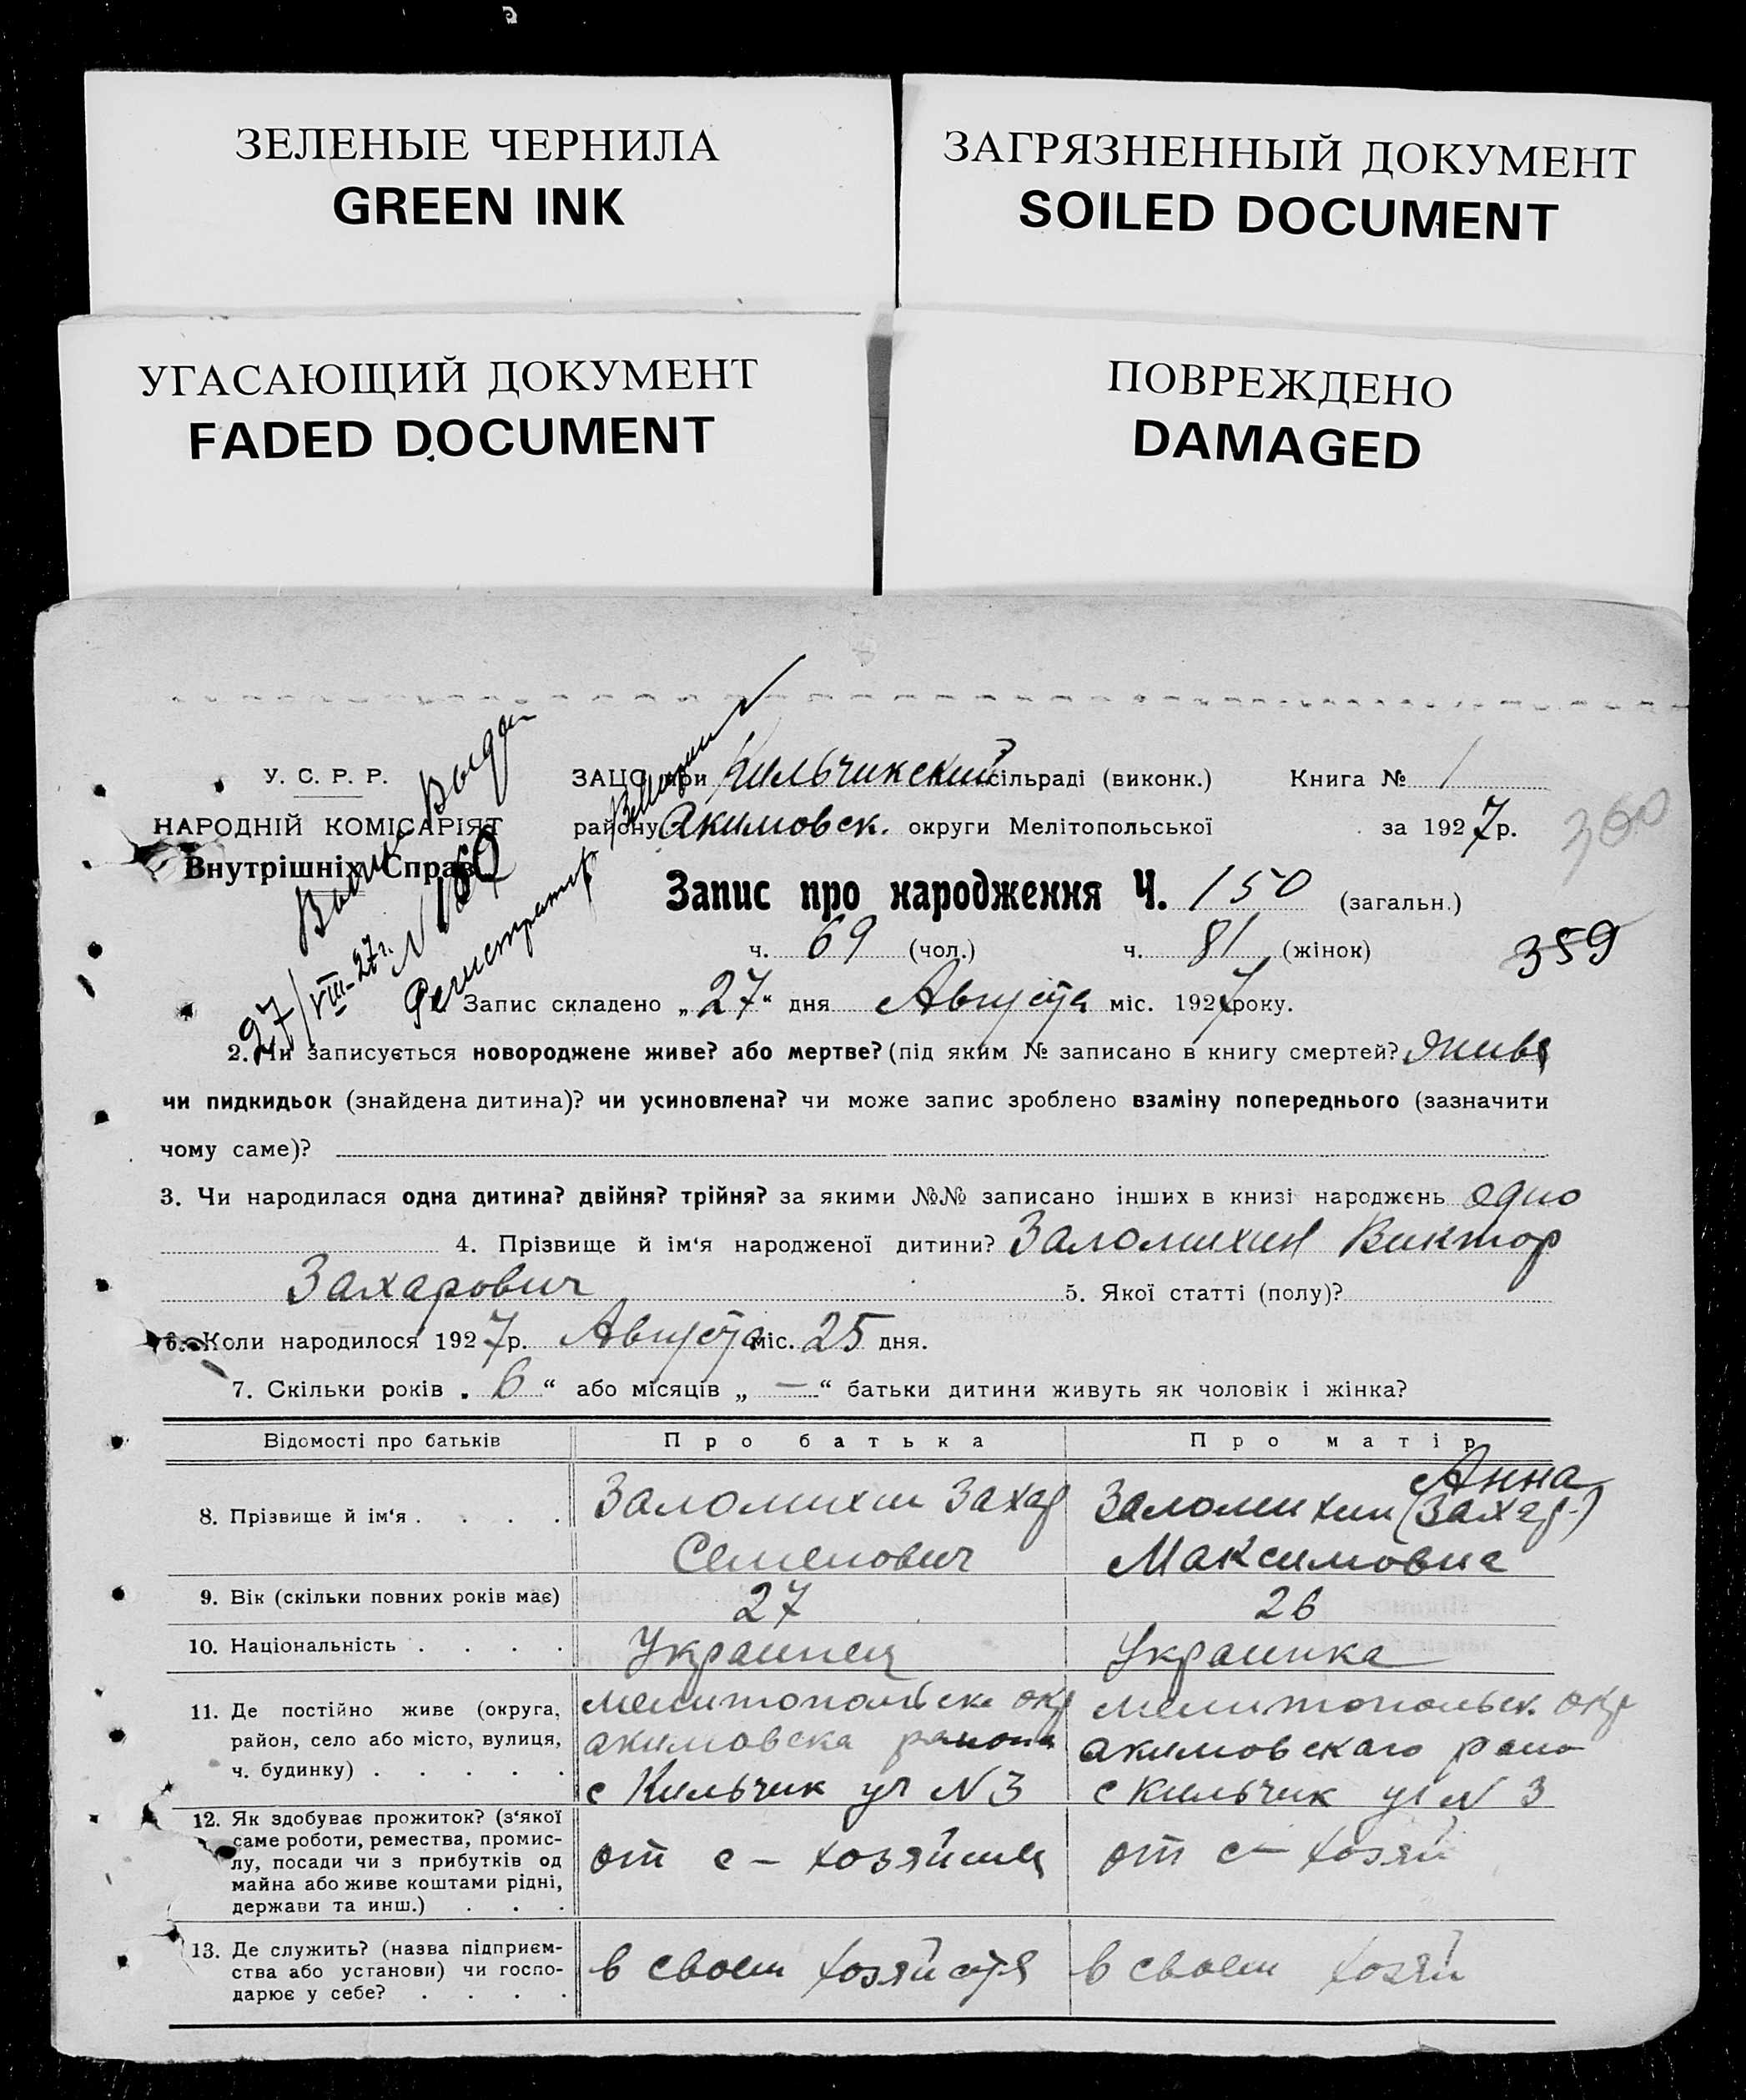 ЗЕЛЕНЫЕ ЧЕРНИЛА
GREEN INK
ЗАГРЯЗНЕННЫЙ ДОКУМЕНТ
SOILED DOCUMENT
УГАСАЮЩИЙ ДОКУМЕНТ
FADED DOCUMENT
ПОВРЕЖДЕНО
DAMAGED
У. С. Р. Р.
НАРОДНІЙ КОМІСАРІЯТ
Внутрішніх Справ
27/VIII-27г.
Регистратор
ЗАЦС при Кильчикский сільраді (виконк.) Книга № 1
району Акимовск. округи Мелітопольської за 1927 р.
360
Запис про народження Ч. 150 (загальн.)
ч. 69 (чол.) ч. 81 (жінок)
359
Запис складено „27“ дня Августа міс. 1927 року.
2. Чи записується новороджене живе? або мертве? (під яким № записано в книгу смертей?
чи пидкидьок (знайдена дитина)? чи усиновлена? чи може запис зроблено взаміну попереднього (зазначити
чому саме)?
3. Чи народилася одна дитина? двійня? трійня? за якими №№ записано інших в книзі народжень одно
4. Прізвище й ім‘я народженої дитини? Заломихин Виктор
Захарович 5. Якої статті (полу)?
6. Коли народилося 1927 р. Августа міс. 25 дня.
7. Скільки років „6“ або місяців „—“ батьки дитини живуть як чоловік і жінка?
Відомості про батьків Про батька Про матір
8. Прізвище й ім‘я . . . . Заломихин Захар Семенович Заломихин (Захар.) Анна Максимовна
9. Вік (скільки повних років має) 27 26
10. Національність . . . . Украинец Украинка
11. Де постійно живе (округа, район, село або місто, вулиця, ч. будинку) . . . . .
Мелитопольск окр
акимовска района
с Кильчик ул N 3
Мелитопольск. окр
акимовскаго райо
с Кильчик ул N 3
12. Як здобуває прожиток? (з‘якої
саме роботи, ремества, промис-
лу, посади чи з прибутків од
майна або живе коштами рідні,
держави та инш.) . . .
от с – хозяйства
от с – хозяй
13. Де служить? (назва підприєм-
ства або установи) чи госпо-
дарює у себе? . . . .
в своем хозяйстве
в своем хозяй